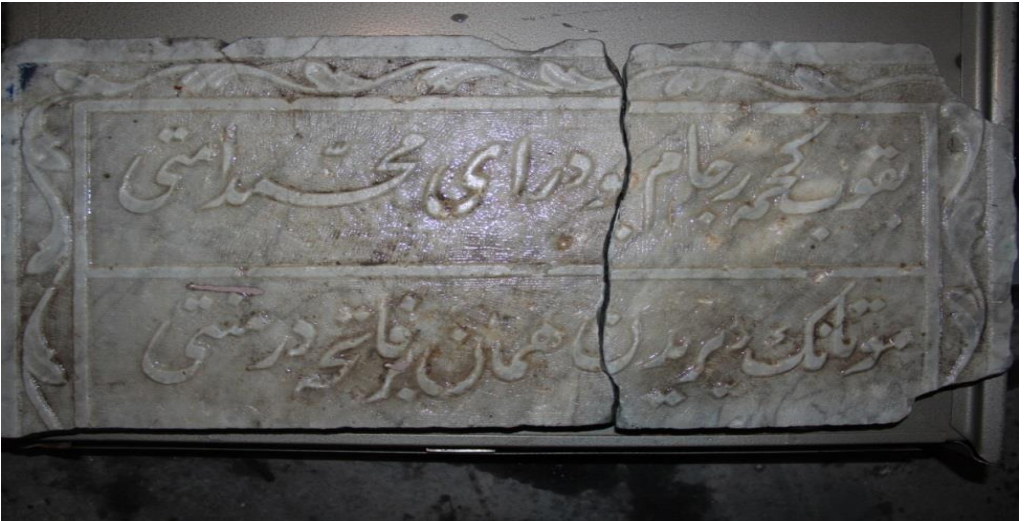 بقوب كچمه رجام بودر ای محمد امتی
موتانك ديريدن همان بر فاتحه در منتی